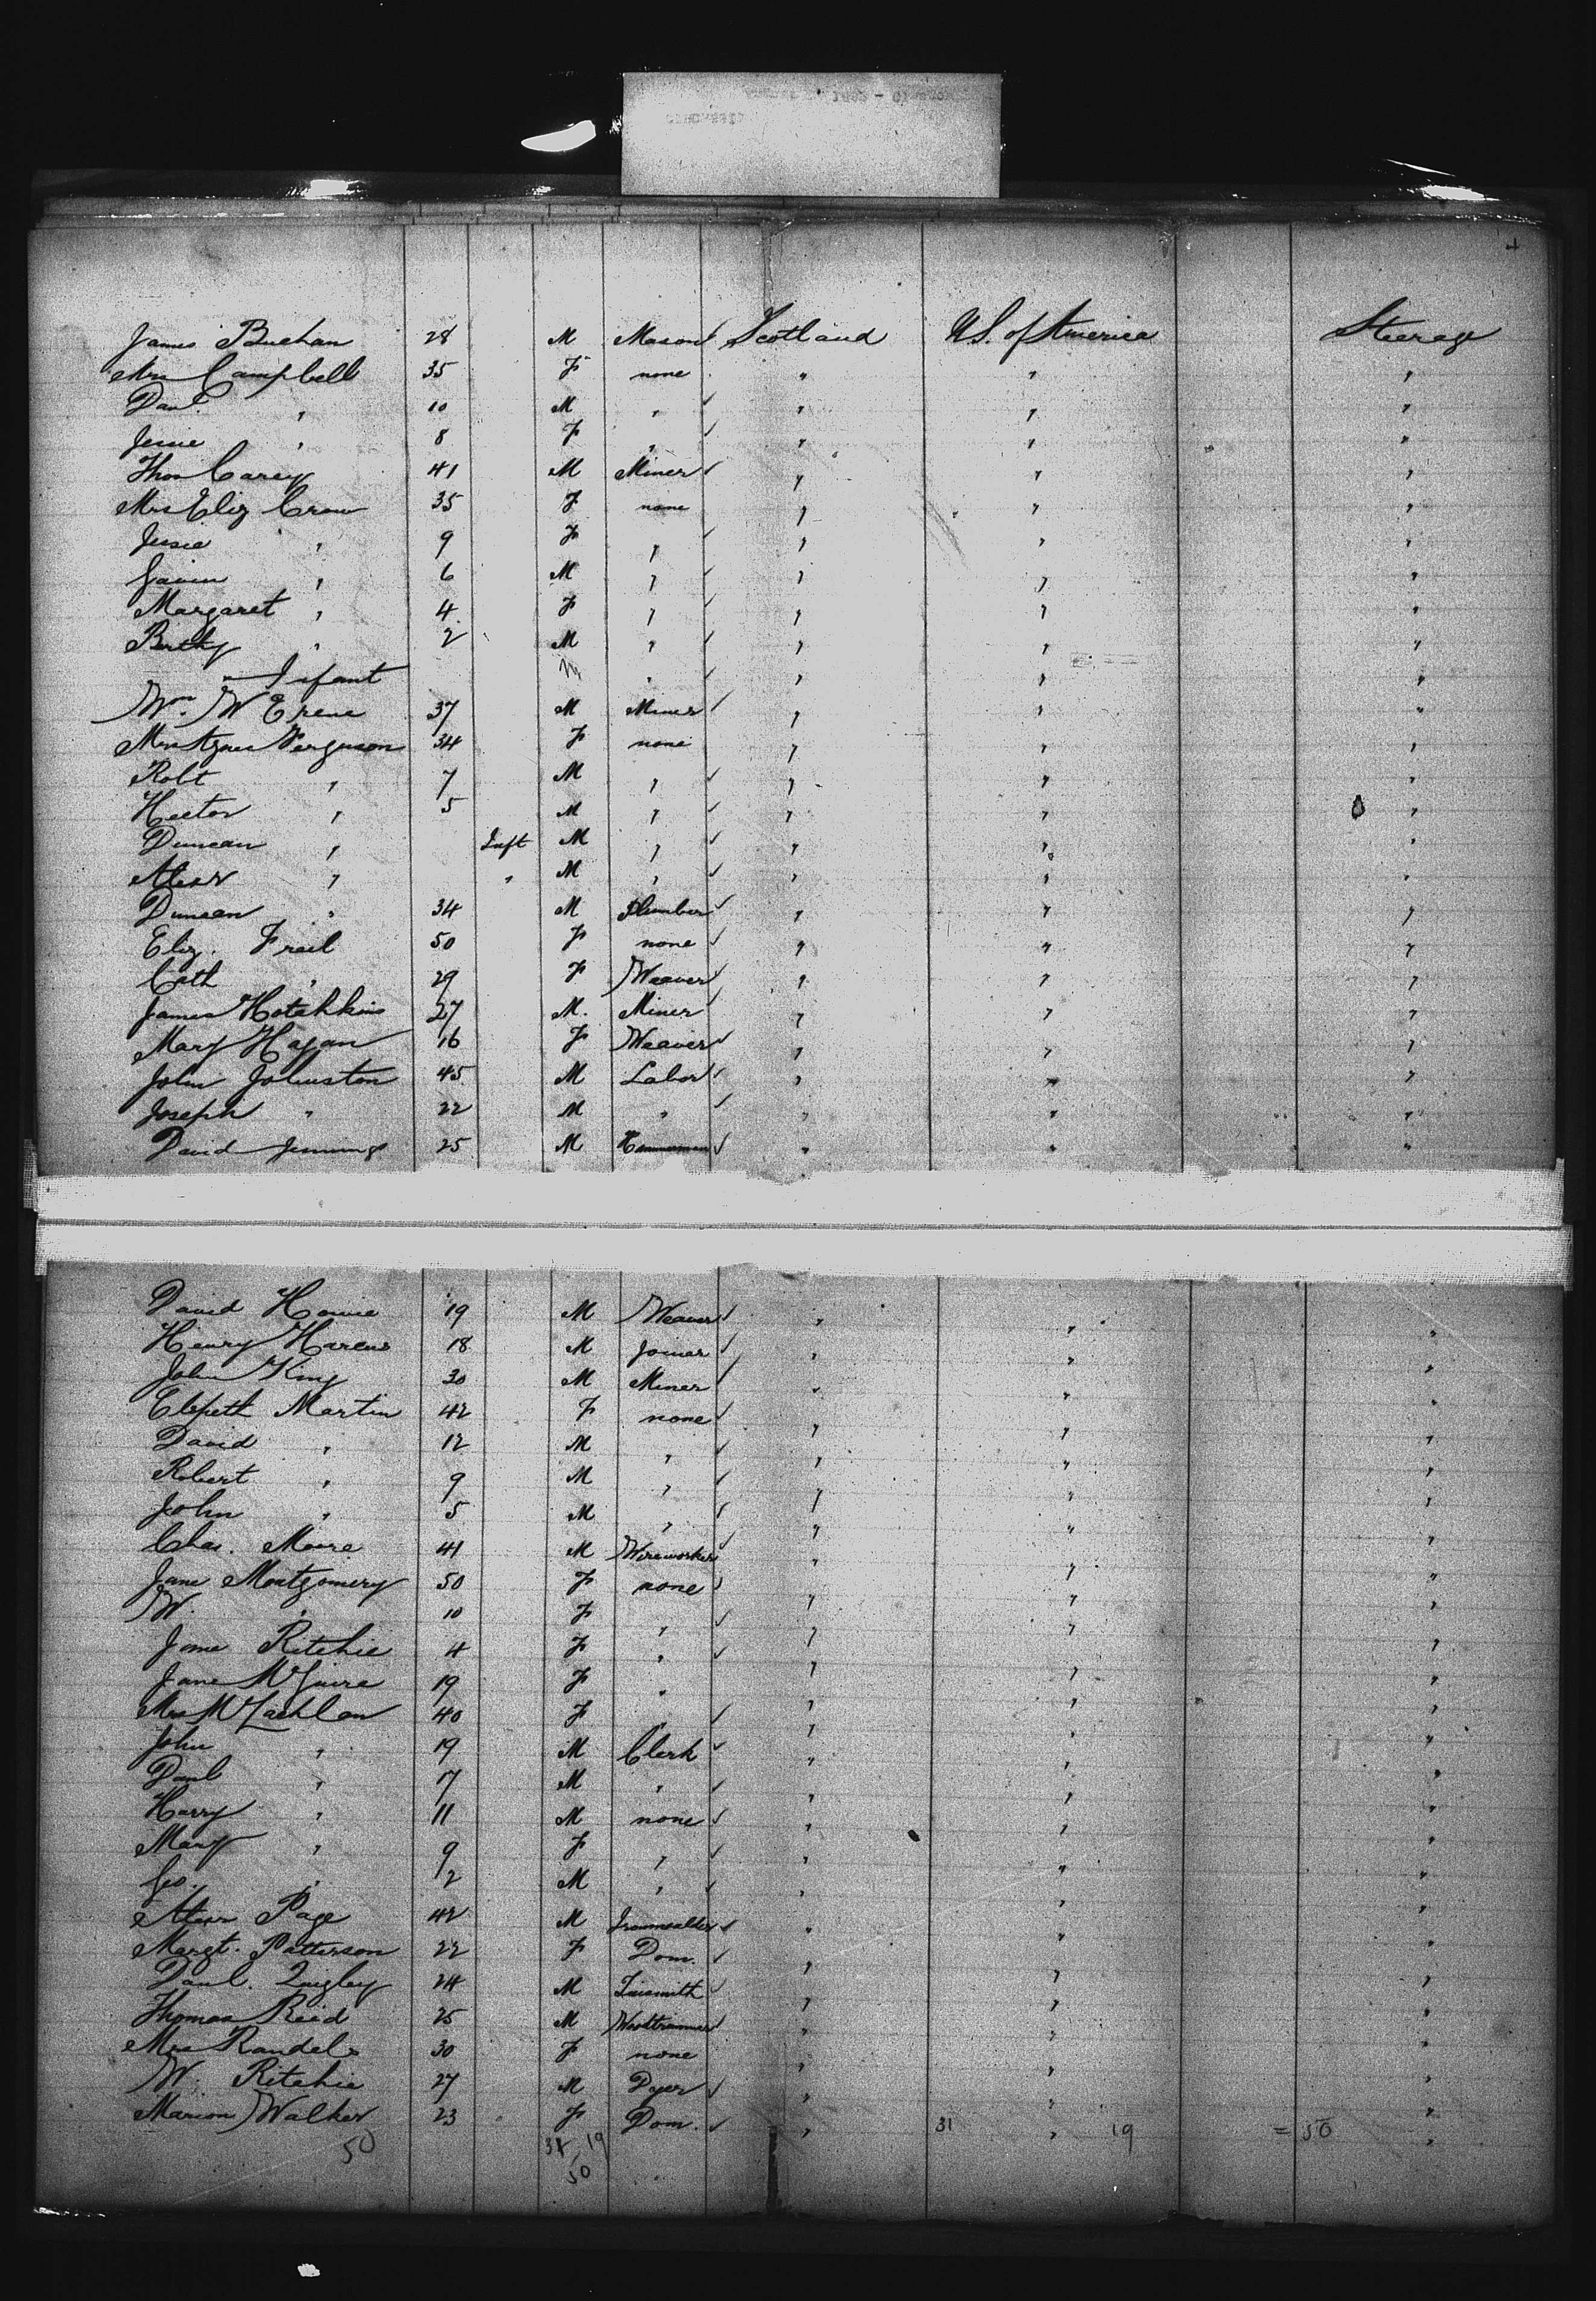 4
James Buchan 28 M Mason Scotland U.S. of America Steerage
Mrs Campbell 35 F none " " "
Danl. " 10 M " " " "
Jessie " 8 F " " " "
Thos Carey 41 M Miner " " "
Mrs Eliz Crow 35 F none " " "
Jessie " 9 F " " " "
Gavin " 6 M " " " "
Margaret " 4 F " " " "
" 2 M " " " "
" Infant M " " " "
Wm. 37 M Miner " " "
Mrs Agnes Ferguson 34 F none " " "
Robt " 7 M " " " "
Hector " 5 M " " " "
Duncan " Inft M " " " "
Alexr " " M " " " "
Duncan " 34 M Plumber " " "
Eliz. Frail 50 F none " " "
Cath " 29 F Weaver " " "
James Hotchkins 27 M. Miner " " "
Mary Hagan 16 F Weaver " " "
John Johnston 45 M Labor " " "
Joseph " 22 M " " " "
David Jennings 25 M " " "
David Howie 19 M Weaver " " "
Henry 18 M Joiner " " "
John King 30 M Miner " " "
Elspeth Martin 42 F none " " "
David " 12 M " " " "
Robert " 9 M " " " "
John " 5 M " " " "
Chas. Moore 41 M Wireworker " " "
Jane Montgomery 50 F none " " "
W. " 10 F " " " "
Jane Ritchie 4 F " " " "
Jane McGuire 19 F " " " "
Mrs McLachlan 40 F " " " "
John " 19 M Clerk " " "
Danl " 17 M " " " "
Harry " 11 M none " " "
Mary " 9 F " " " "
Geo. " 2 M " " " "
Alexr Page 42 M " " "
Margt. Patterson 22 F Dom. " " "
Danl. Quigley 24 M Tinsmith " " "
Thomas Reid 25 M " " "
Mrs Randels 30 F none " " "
W. Ritchie 27 M Dyer " " "
Marion Walker 23 F Dom. " 31 " 19 = 50 "
50 31 19
50